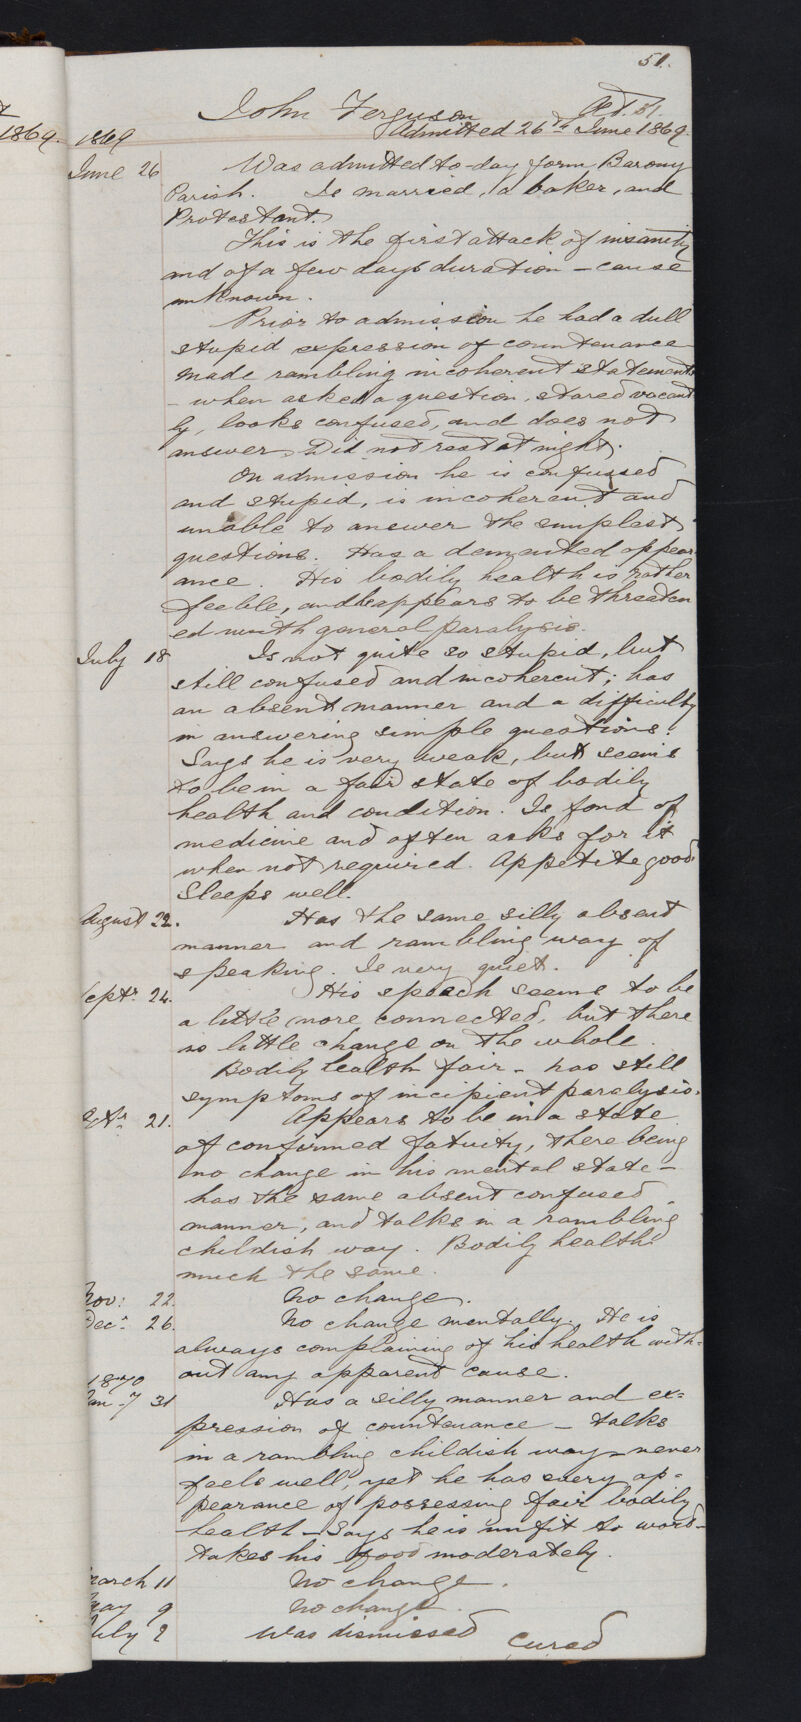 51.
John Ferguson Aet. 31.
1869. 1869 Admitted 26th June 1869.
June 26 Was admitted to-day form Barony
Parish. Is married, a baker, and
Protestant.
This is the first attack of insanity
and of a few days duration – cause
unknown.
Prior to admission he had a dull
stupid expression of countenance
made rambling incoherent statements
– when asked a question, stared vacant
ly, looks confused, and does not
answer. Did not rest at night.
On admission he is confused
and stupid, is incoherent and
unable to answer the simplest
questions. Has a demented appear
ance. His bodily health is rather
feeble, and he appears to be threaten
ed with general paralysis.
July 18 Is not quite so stupid, but
still confused and incoherent; has
an absent manner and a difficulty
in answering simple questions.
Says he is very weak, but seems
to be in a fair state of bodily
health and condition. Is fond of
medicine and often asks for it
when not required. Appetite good
Sleeps well.
August 22. Has the same silly absent
manner and rambling way of
speaking. Is very quiet.
Septr. 24. His speech seems to be
a little more connected, but there
is little change on the whole.
Bodily health fair – has still
symptoms of incipient paralysis.
Octr. 21. Appears to be in a state
of confirmed fatuity, there being
no change in his mental state –
has the same absent confused
manner, and talks in a rambling
childish way. Bodily health
much the same.
Nov: 22. No change.
Decr. 26. No change mentally. He is
always complaining of his health with=
out any apparent cause.
1870
Jany 31 Has a silly manner and ex=
pression of countenance – talks
in a rambling childish way – never
feels well, yet he has every ap=
pearance of possessing fair bodily
health – Says he is unfit to work –
takes his food moderately.
March 11 No change.
May 9 No change.
July 2 Was dismissed Cured